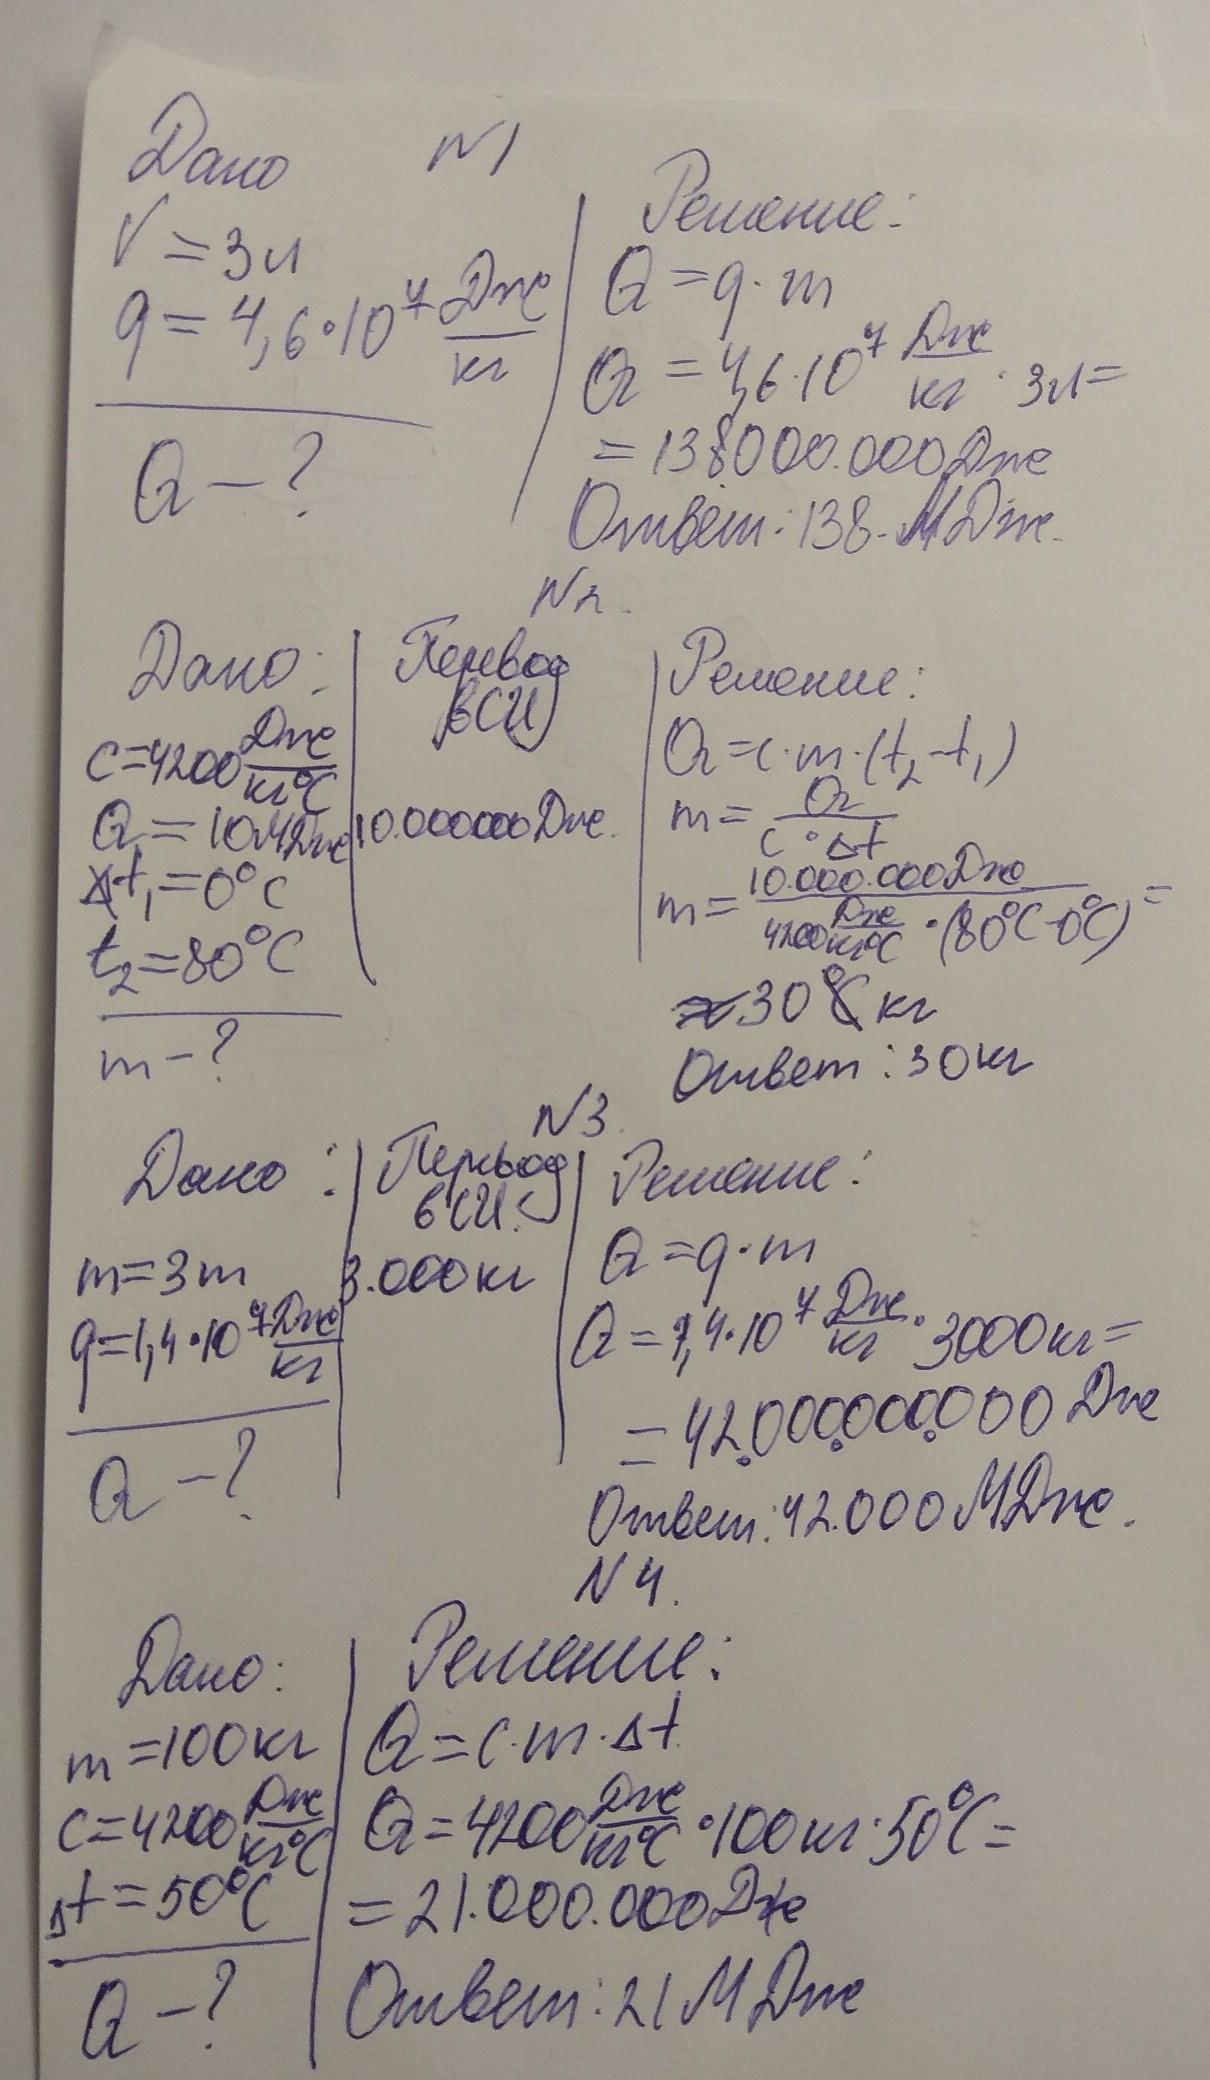 N1
Дано
V = 3л
q = 4,6·10⁷ Дж/кг
Q – ?
Решение:
Q = q·m
Q = 4,6·10⁷ Дж/кг · 3л =
= 138000.000Дж
Ответ: 138 МДж.
N2.
Дано:
c=4200 Дж/кг°C
Q = 10МДж
t₁ = 0°C
t₂ = 80°C
m – ?
Перевод
в СИ
10.000000Дж.
Решение:
Q = c·m·(t₂-t₁)
m = Q/c·Δt
m = 10.000.000Дж/4200 Дж/кг°C · (80°C-0°C) =
≈ 30 кг
Ответ: 30кг
N3.
Дано:
m = 3т
q=1,4·10⁷ Дж/кг
Q – ?
Перевод
в СИ.
3.000кг
Решение:
Q = q·m
Q = 1,4·10⁷ Дж/кг · 3000кг =
= 42.000.000.000 Дж
Ответ: 42.000 МДж.
N4.
Дано:
m = 100кг
c=4200 Дж/кг°C
Δt = 50°C
Q – ?
Решение:
Q = c·m·Δt
Q = 4200 Дж/кг°C · 100кг · 50°C =
= 21.000.000Дж
Ответ: 21 МДж